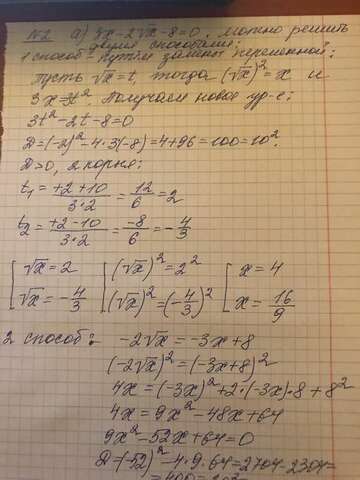 №2 а) 3x-2√x-8=0, можно решить
двумя способами:
1 способ - путём замены переменной:
Пусть √x=t, тогда (√x)²=x и
3x=3t². Получаем новое ур-е:
3t²-2t-8=0
D=(-2)²-4·3(-8)=4+96=100=10².
D>0, 2 корня:
t₁=+2+10/3·2=12/6=2
t₂=+2-10/3·2=-8/6=-4/3
[√x=2 [(√x)²=2² [x=4
√x=-4/3 (√x)²=(-4/3)² x=16/9
2 способ: -2√x=-3x+8
(-2√x)²=(-3x+8)²
4x=(-3x)²+2·(-3x)·8+8²
4x=9x²-48x+64
9x²-52x+64=0
D=(-52)²-4·9·64=2704-2304=
=400=20²